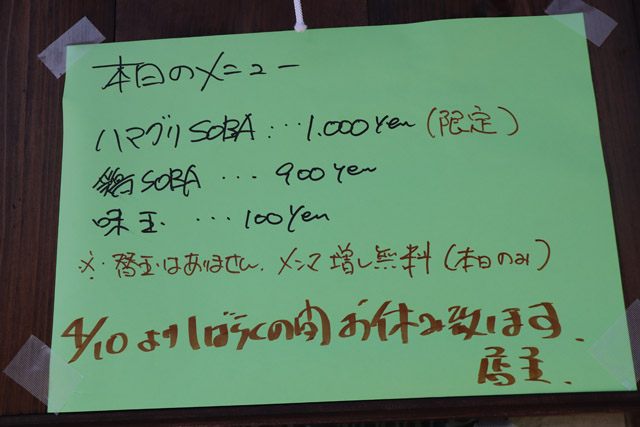 本日のメニュー
ハマグリSOBA…1.000Yen(限定)
鶏SOBA…900Yen
味玉…100Yen
※替玉はありません.メンマ増し無料(本日のみ)
4/10よりしばらくの間お休み致します.
店主.